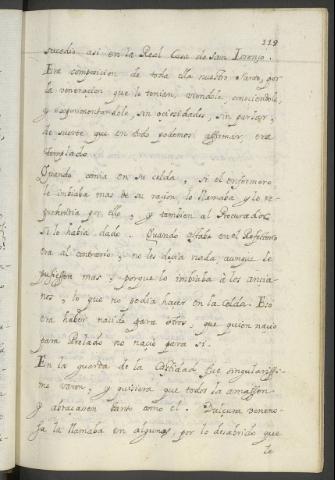 119
sucedio assi en la Real Casa de San Lorenzo.
Era composicion de toda ella nuestro Varon, por
la veneracion que le tenian, viendole, conociendole
y experimentandole, sin ociosidades, sin parlar,
de suerte que en todo podemos affirmar, era
templado.
Quando comia en su celda, si el enfermero
le imbiaba mas de su racion, lo llamaba y lo re-
prehendia por ello, y tambien al Procurador
si lo habia dado. Quando estaba en el Refectorio
era al contrario, no les decia nada aunque le
pusiessen mas, porque lo imbiaba à los ancia-
nos, lo que no podia hacer en la Celda. Esto
era haber nacido para otros, que quien nacio
para Prelado no nacio para si.
En la guarda de la Castidad fue singularissi-
mo varon, y quisiera que todos la amassen
y abrazassen tanto como el. Dulzura veneno-
sa la llamaba en algunos, por lo desabrido que
le